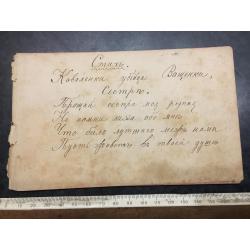 Стихъ.
Коваленка убійца Ващенки,
Сестрѣ.
Прощай сестра моя родная
Не помни лиха обо мнѣ
Что было лутшаго межъ нами
Пусть живетъ въ твоей душѣ